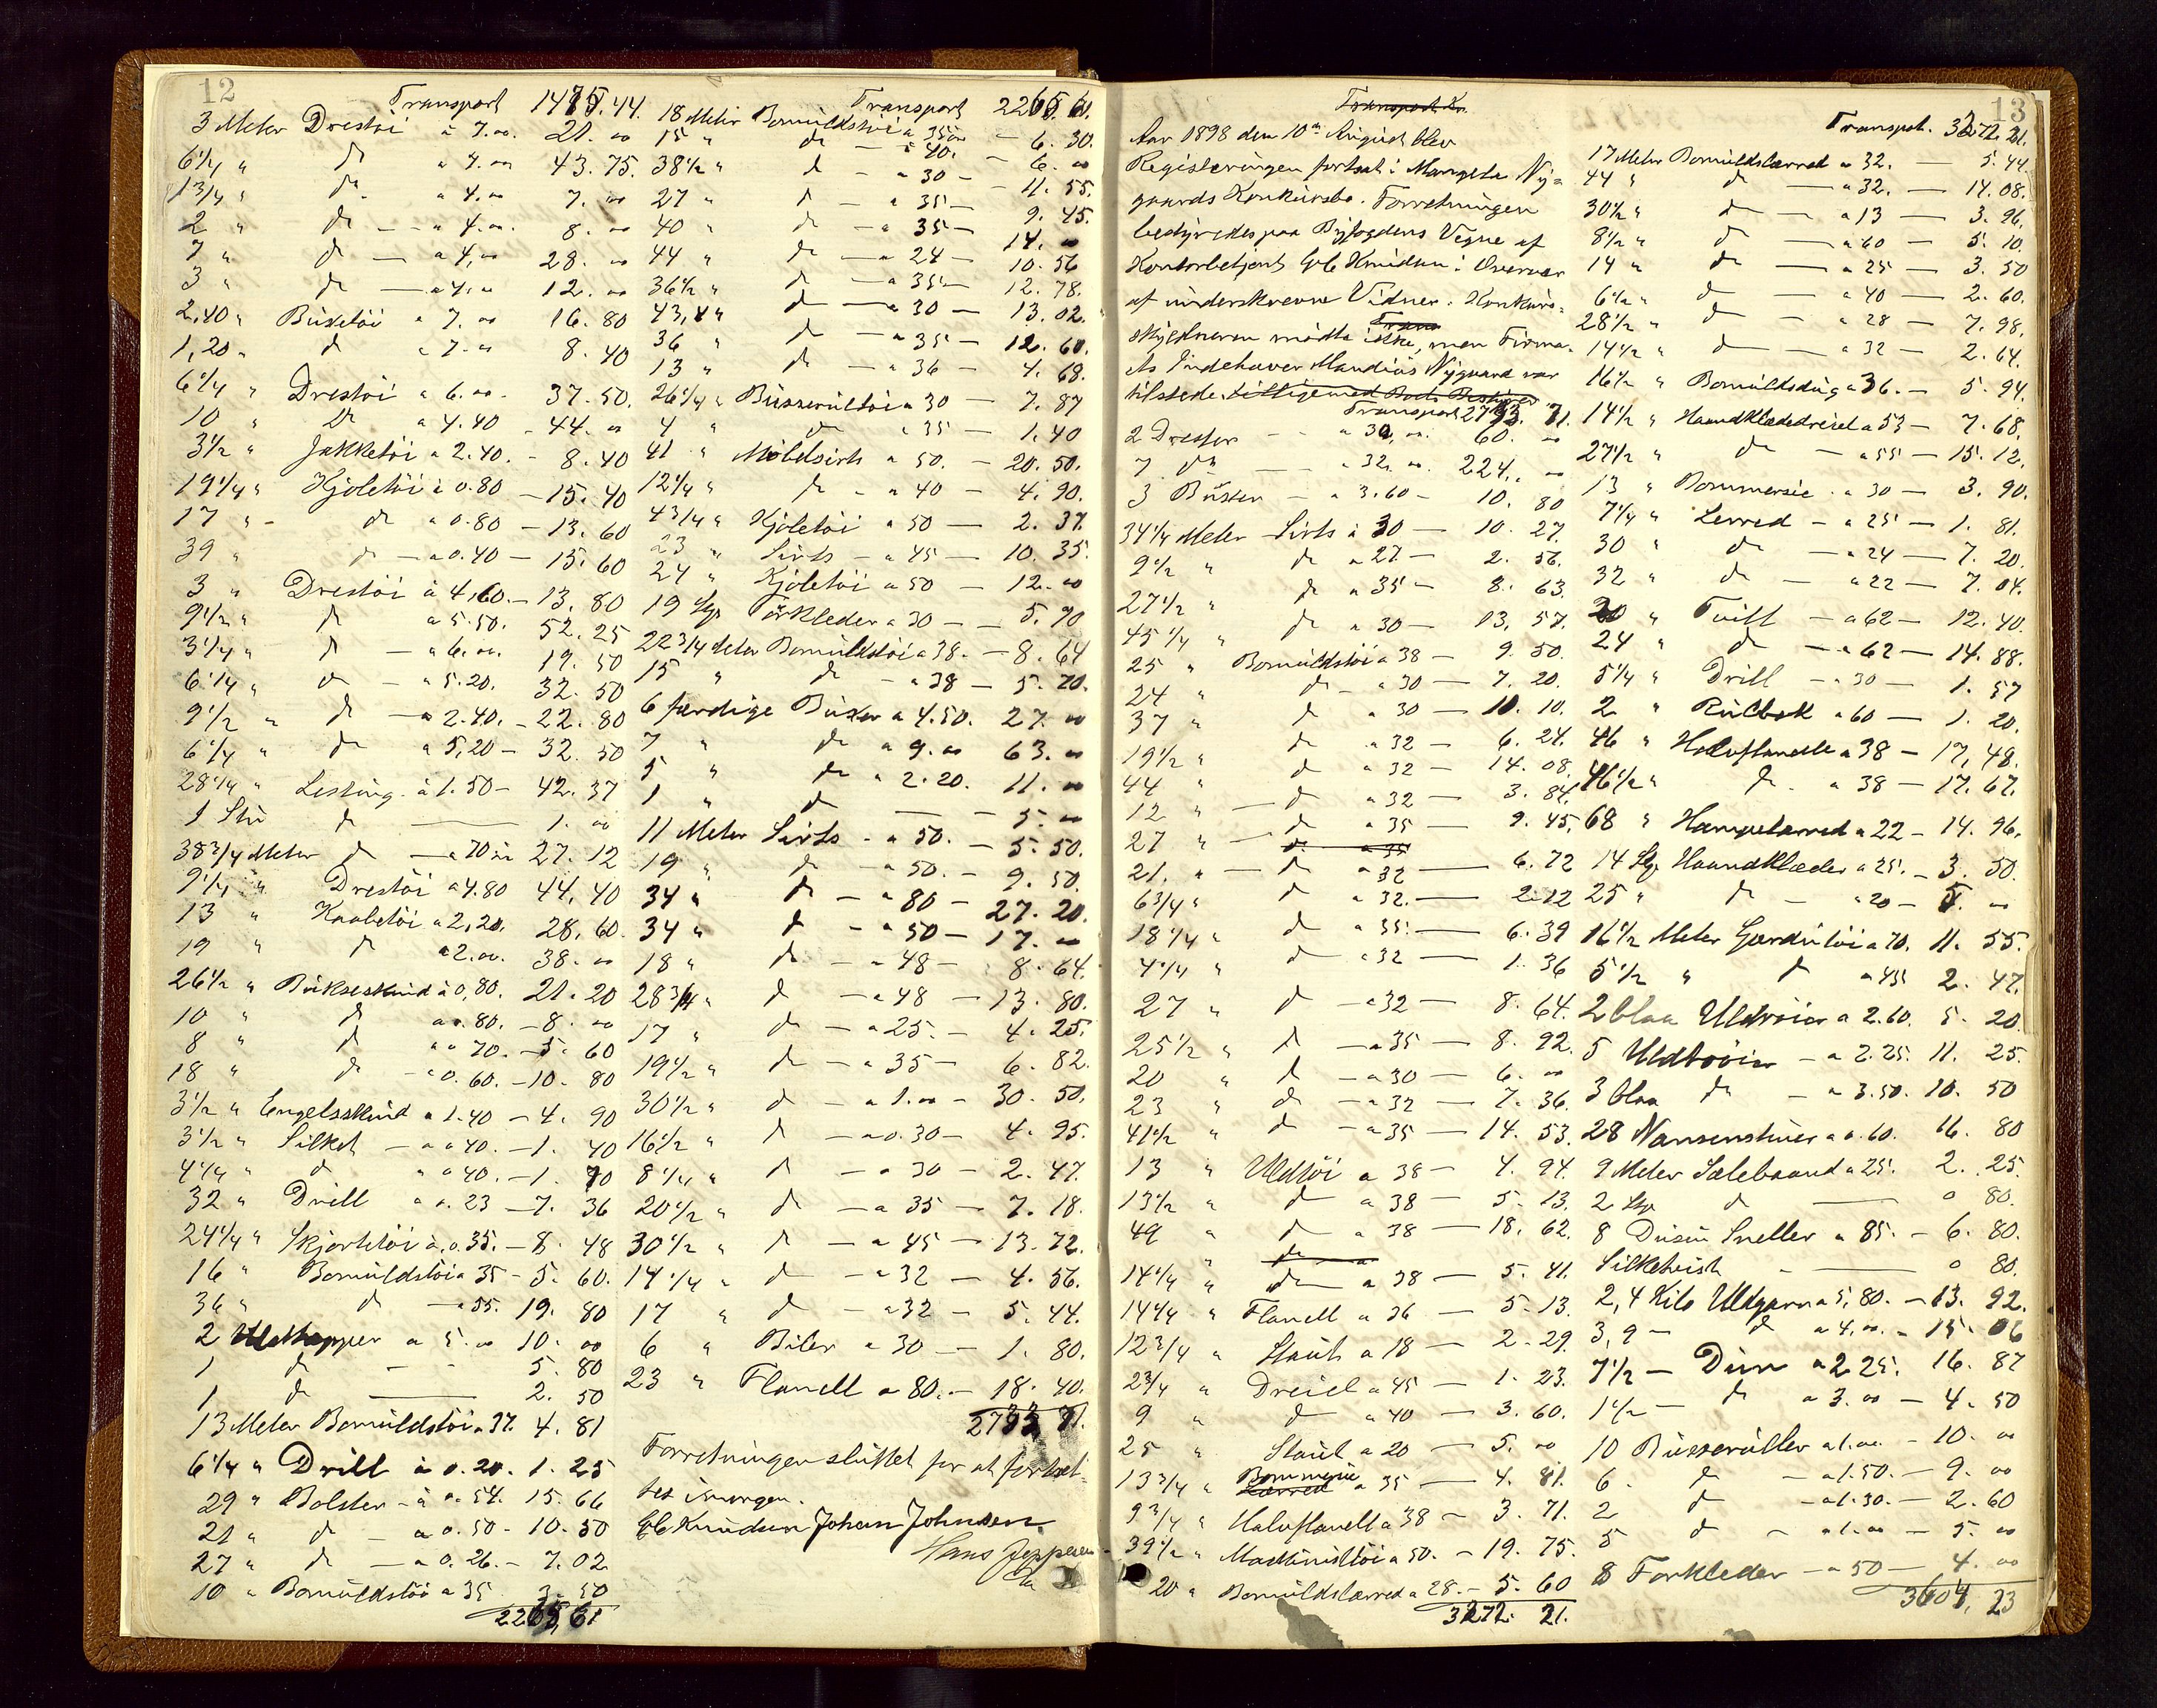 12
Transport 1475.44.
3 Meter Drestöi à 7.00. 21. 00
6 1/4 " do a 7.00 43. 75.
1 3/4 " do a 4.00 7. 00
2 " do — a 4.00. 8. 00
7 " do — a 4,00 28. 00
3 " do — a 4,00 12. 00
2,40 " Büxetöi a 7. 00 16. 80
1,20 " do a 7.00 8. 40
6 1/4 " Drestöi a 6.00 - 37. 50.
10 " do a 4.40 - 44. 00
3 1/2 " Jakketöi a 2.40. - 8. 40
19 1/4 " Kjoletöi à 0.80 — 15. 40
17 " - do a 0.80 - 13. 60
39 " do — a 0.40 — 15. 60
3 " Drestöi à 4,60. — 13. 80
9 1/2 " do a 5.50. 52. 25
3 1/4 " do — a 6.00. 19. 50
6 1/4 " do — a 5.20. 32. 50
9 1/2 " do — a 2.40. — 22. 80
6 1/4 " do a 5,20 — 32. 50
28 1/4 " Lesting. à 1.50 - 42. 37
1 Stü do — 1. 00
38 3/4 Meter do — a 70 ör 27. 12
9 1/4 " Drestöi a 4.80 44. 40
13 " Kaabetöi a 2,20. 28. 60.
19 " do a 2.00. 38. 00
26 1/2 " Bükseskind à 0,80. 21. 20
10 " do a 0.80. — 8. 00
8 " do a 0 70. — 5. 60
18 " do — a 0. 60. — 10. 80
3 1/2 " Engelsskind a 1.40 — 4. 90
3 1/2 " Silket — a 0 40. — 1. 40
4 1/4 " do " a 40. — 1. 70
32 " Drill a 0. 23 — 7. 36
24 1/4 " Skjortetöi à 0.35. — 8. 48
16 " Bomüldstöi a 35 - 5. 60.
36 " do — a 55. 19. 80
2 Uldkapper a 5.00 10. 00
1 do — - 5. 80
1 do — 2. 50
13 Meter Bomüldstöi a 37. 4. 81
6 1/4 " Drill à 0.20. 1. 25
29 " Bolster - à 0.54. 15. 66
21 " do — a 0.50 - 10. 50
27 " do — a 0.26. — 7. 02
10 " Bomüldstöi a 35 3. 50
2265, 61
Transport 2265 61.
18 Meter Bomüldstöi a 35 ör — 6. 30.
15 " do — a 40. — 6. 00
38 1/2 " do — a 30 — 11. 55.
27 " do — a 35 — 9. 45.
40 " do — a 35 — 14. 00
44 " do — a 24 — 10. 56
36 1/2 " do — a 35 — 12. 78.
43,4 " do — a 30 — 13. 02.
36 " do — a 35 — 12. 60.
13 " do — a 36 — 4. 68.
26 1/4 " Büsserültöi a 30 — 7. 87
4 " do a 35 — 1. 40
41 " Möbelsirts a 50. — 20. 50.
12 1/4 " do — a 40 — 4. 90.
4 3/4 " Kjoletöi a 50 — 2. 37.
23 " Sirts — a 45 — 10. 35.
24 " Kjoletöi a 50 — 12. 00
19 Stp. Törkleder a 30 — 5. 70
22 3/4 Meter Bomüldstöi a 38. — 8. 64
15 " do — a 38 — 5. 70.
6 færdige Büxer a 4.50. 27. 00
7 " do a 9. 00 63. 00
5 " do a 2. 20. 11. 00
1 " do — 5. 00
11 Meter Sirts — a 50. — 5. 50.
19 " do — a 50. — 9. 50.
34 " do — a 80 — 27. 20.
34 " do — a 50 — 17. 00
18 " do — a 48 — 8. 64.
28 3/4 " do — a 48 — 13. 80.
17 " do — a 25. — 4. 25.
19 1/2 " do — a 35 — 6. 82.
30 1/2 " do — a 1.00 — 30. 50.
16 1/2 " do — a 0.30 — 4. 95.
8 1/4 " do — a 30 — 2. 47.
20 1/2 " do — a 35 — 7. 18.
30 1/2 " do — a 45 — 13. 72.
14 1/4 " do — a 32 — 4. 56.
17 " do — a 32 — 5. 44.
6 " Biler a 30 — 1. 80.
23 " Flanell a 80. — 18. 40.
2793 71.
Forretningen slüttet for at fortsæt-
tes imorgen.
Gb Knudsen Johan Johnsen
Hans Jeppesen
13
Transport Kr.
Aar 1898 den 10de August blev
Registeringen fortsat i Mangete Ny-
gaards Konkürsbo. Forretningen
bestyredes paa Byfogdens Vegne af
Kontorbetjent Gb Knudsen i Overvær
af underskrevne Vidner. Konkürs-
Trans
skyldneren mödte ikke, men Firma-
ets Indehaver Mandius Nygaard var
tilstede. tilligemed Bods Bestyrer
Transport 2793. 71.
2 Dresser — a 30,00. 60. 00
7 do — a 32,00. 224. 00
3 Büxer — a 3.60 — 10. 80
34 1/4 Meter Sirts à 30 — 10. 27.
9 1/2 " do a 27 — 2. 56.
27 1/2 " do a 35 — 8. 63.
45 1/4 " do a 30 — 13. 57.
25 " Bomüldstöi a 38 — 9. 50.
24 " do — a 30 — 7. 20.
37 " do a 30 — 11. 10.
19 1/2 " do a 32 — 6. 24.
44 " do a 32 — 14. 08.
12 " — do a 32 — 3. 84.
27 " — do a 35 — 9. 45.
do a 35
21. " — do a 32 — 6. 72
6 3/4 " do a 32. — 2. 12
18 1/4 " do a 35. — 6. 39
4 1/4 " do a 32 — 1. 36
27 " do — a 32 — 8. 64.
25 1/2 " do — a 35 — 8. 92.
20 " do — a 30 — 6. 00
23 " do — a 32 — 7. 36.
41 1/2 " do — a 35 — 14. 53.
13 " Uldtöi a 38 — 4. 94.
13 1/2 " do a 38 — 5. 13.
49 " do a 38 — 18. 62.
" do
14 1/4 " do a 38 — 5. 41.
14 1/4 " Flanell a 36 — 5. 13.
12 3/4 " Staut a 18 — 2. 29.
2 3/4 " Dreiel a 45 — 1. 23.
9 " do a 40 — 3. 60.
25 " Staut a 20 — 5. 00
Bommesie
13 3/4 " Lærred a 35 — 4. 81.
9 3/4 " Halvflanell a 38 — 3. 71.
39 1/2 " Maskinisttöi a 50. — 19. 75.
20 " Bomüldslærred a 28. — 5. 60
3272. 21.
Transpt. 3272. 21.
17 Meter Bomüldslærred a 32. — 5. 44.
44 " do — a 32. — 14. 08.
30 1/2 " do — a 13 — 3. 96.
8 1/2 " do — a 60 — 5. 10.
14 " do — a 25 — 3. 50
6 1/2 " do — a 40 — 2. 60.
28 1/2 " do — a 28 — 7. 98.
14 1/2 " do — a 32 — 2. 64.
16 1/2 " Bomüldsdüg a 36. — 5. 94.
14 1/2 " Haandklædedreiel a 53 — 7. 68.
27 1/2 " do — a 55 — 15. 12.
13 " Bommersie . a 30 — 3. 90.
7 1/4 " Lerred — a 25 — 1. 81.
30 " do — a 24 — 7. 20.
32 " do — a 22 — 7. 04.
20 " Tvill — a 62 — 12. 40.
24 " do — a 62 — 14. 88.
5 1/4 " Drill — a 30 — 1. 57
2 " Rülbok a 60 — 1. 20.
46 " Halvflanell a 38 — 17, 48.
46 1/2 " do . a 38 — 17. 67.
68 " Hampelærred a 22 — 14. 96.
14 Stp Haandklæder a 25. — 3. 50.
25 " do — a 20 — 5. 00
16 1/2 Meter Gardintöi a 70. 11. 55.
5 1/2 " do a 45 2. 47.
2 blaa Uldtröier a 2.60. 5. 20.
5 Uldtröier — a 2.25. 11. 25.
3 blaa do — a 3.50. 10. 50
28 Nansenshuer a 0.60. 16. 80
9 Meter Salebaand a 25. 2. 25.
2 Stp do — 0 80.
8 Düsin Sneller a 85. — 6. 80.
Silketvist — 0 80.
2,4 Kilo Uldgarn a 5,80. — 13. 92.
3,9 — do a 4.00. — 15. 06
7 1/2 — Dün a 2 25. 16. 87
1 1/2 — do a 3.00 — 4. 50
10 Büsserüller a 1.00. — 10. 00
6 . do — a 1.50. — 9. 00
2 do — a 1.30. — 2. 60
5 do — a 1.00 — 5. 00
8 Forkleder — a 50 — 4. 00
3604, 23